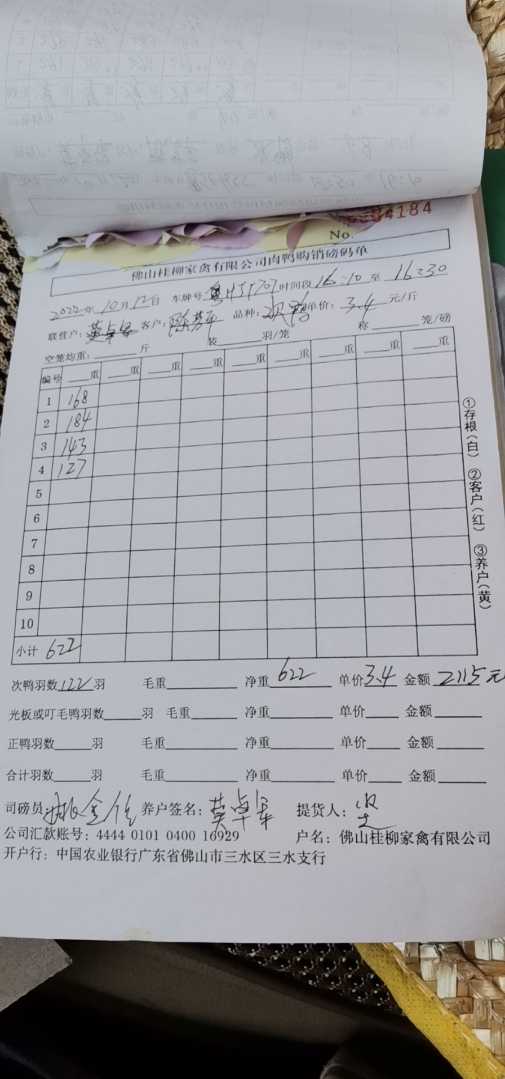 No. 84184
佛山桂柳家禽有限公司肉鸭购销磅码单
2022年10月12日 车牌号 时间段16:10至16:30
联营户: 客户: 品种:次鸭 单价:3.4元/斤
空笼均重:____斤 装____羽/笼 称____笼/磅
编号 ____重 ____重 ____重 ____重 ____重 ____重 ____重 ____重 ____重
1 168
2 184
3 143
4 127
5
6
7
8
9
10
小计 622
①存根(白) ②客户(红) ③养户(黄)
次鸭羽数122羽 毛重____ 净重622 单价3.4 金额2115元
光板或叮毛鸭羽数____羽 毛重____ 净重____ 单价____ 金额____
正鸭羽数____羽 毛重____ 净重____ 单价____ 金额____
合计羽数____羽 毛重____ 净重____ 单价____ 金额____
司磅员 养户签名: 提货人:
公司汇款账号: 4444 0101 0400 16929 户名: 佛山桂柳家禽有限公司
开户行: 中国农业银行广东省佛山市三水区三水支行